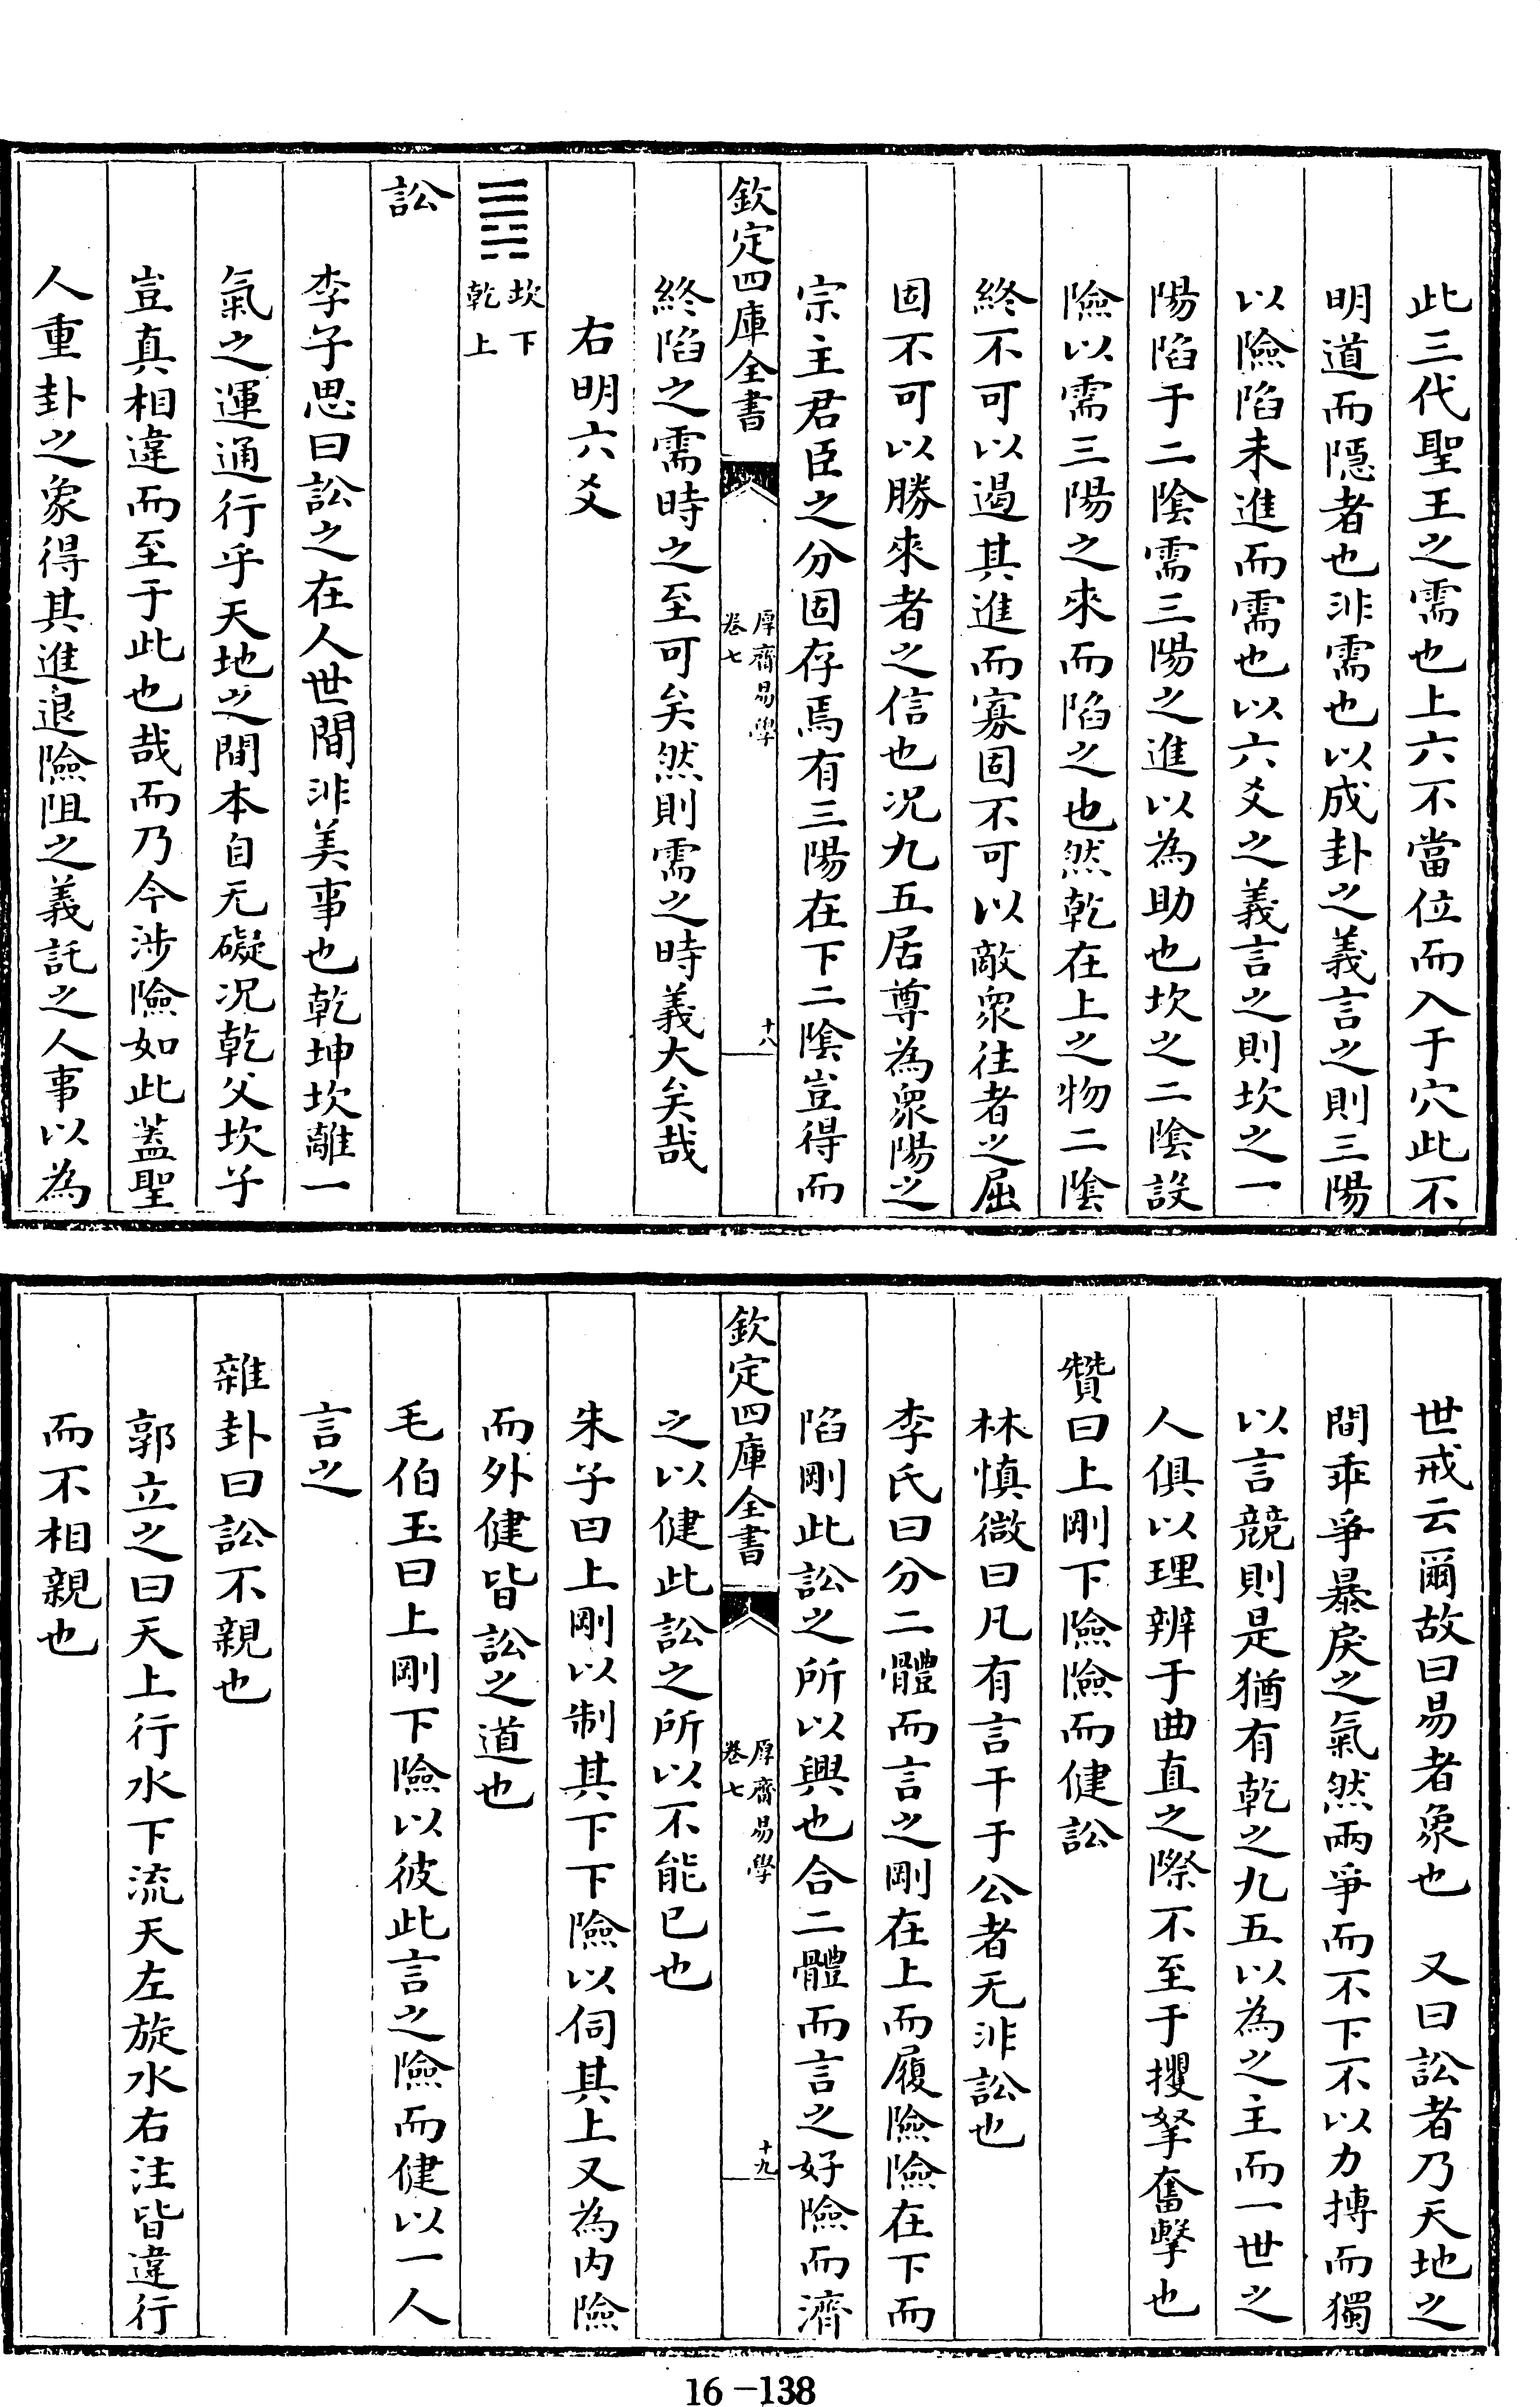 此三代聖王之需也上六不當位而入于穴此不
明道而隱者也非需也以成卦之義言之則三陽
以險陷未進而需也以六爻之義言之則坎之一
陽陷于二陰需三陽之進以為助也坎之二陰設
險以需三陽之來而陷之也然乾在上之物二陰
終不可以遏其進而寡固不可以敵衆往者之屈
固不可以勝來者之信也况九五居尊為衆陽之
宗主君臣之分固存焉有三陽在下二陰豈得而
欽定四庫全書
厚齋易學
卷七
十八
終陷之需時之至可矣然則需之時義大矣哉
右明六爻
䷅
坎下
乾上
訟
李子思曰訟之在人世間非美事也乾坤坎離一
氣之運通行乎天地之間本自无礙况乾父坎子
豈真相違而至于此也哉而乃今涉險如此蓋聖
人重卦之象得其進退險阻之義託之人事以為
世戒云爾故曰易者象也　又曰訟者乃天地之
間乖爭暴戾之氣然兩爭而不下不以力搏而獨
以言競則是猶有乾之九五以為之主而一世之
人俱以理辨于曲直之際不至于攫拏奮擊也
贊曰上剛下險險而健訟
林慎微曰凡有言干于公者无非訟也
李氏曰分二體而言之剛在上而履險險在下而
陷剛此訟之所以興也合二體而言之好險而濟
欽定四庫全書
厚齋易學
卷七
十九
之以健此訟之所以不能已也
朱子曰上剛以制其下下險以伺其上又為内險
而外健皆訟之道也
毛伯玉曰上剛下險以彼此言之險而健以一人
言之
雜卦曰訟不親也
郭立之曰天上行水下流天左旋水右注皆違行
而不相親也
16－138